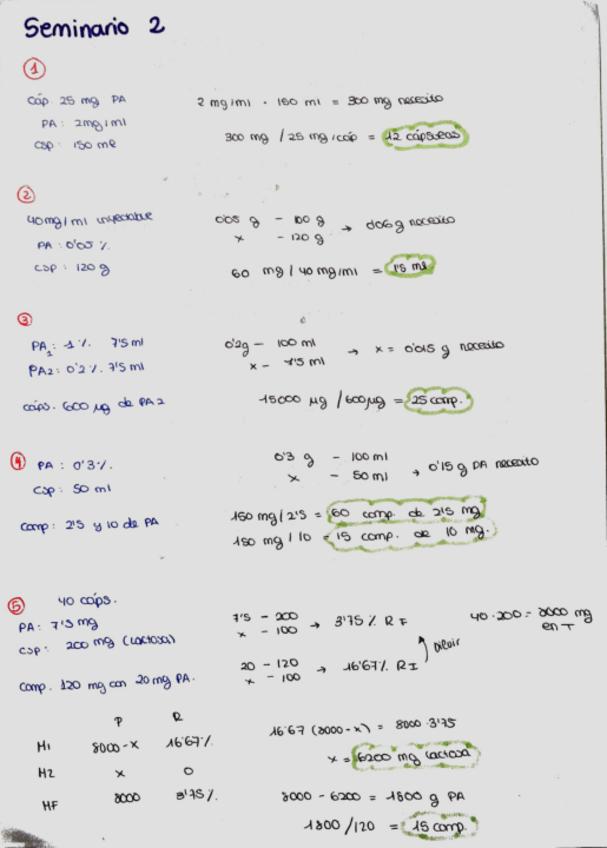 Seminario 2
1
Cáp. 25 mg PA
PA: 2mg/ml
csp: 150 ml
2 mg/ml · 150 ml = 300 mg necesito
300 mg / 25 mg/cáp = 12 cápsulas
2
40mg/ml inyectable
PA: 0'05 %
csp: 120 g
0'05 g - 100 g
x - 120 g → 0'06 g necesito
60 mg / 40 mg/ml = 1'5 ml
3
PA1: 1 % 7'5 ml
PA2: 0'2 % 7'5 ml
cáps. 600 µg de PA2
0'2g - 100 ml
x - 7'5 ml → x = 0'015 g necesito
15000 µg / 600µg = 25 comp.
4
PA: 0'3 %
csp: 50 ml
comp: 2'5 y 10 de PA
0'3 g - 100 ml
x - 50 ml → 0'15 g PA necesito
150 mg / 2'5 = 60 comp. de 2'5 mg
150 mg / 10 = 15 comp. de 10 mg.
5
40 cáps.
PA: 7'5 mg
csp: 200 mg (lactosa)
comp. 120 mg con 20 mg PA.
7'5 - 200
x - 100 → 3'75 % RF
40 · 200 = 8000 mg
en T
diluir
20 - 120
x - 100 → 16'67 % RI
P R
M1 8000-x 16'67 %
M2 x 0
MF 8000 3'75 %
16'67 (8000-x) = 8000 · 3'75
x = 6200 mg lactosa
8000 - 6200 = 1800 g PA
1800/120 = 15 comp.